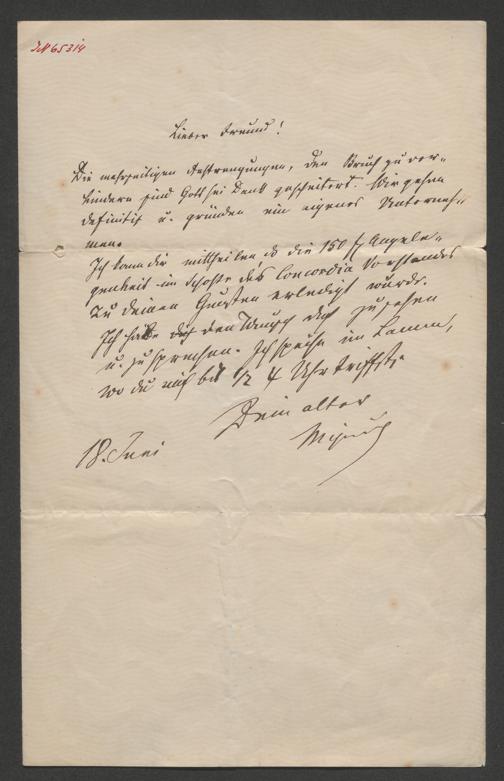 IN 65314
Lieber Freund!
Die mehrseitigen Anstrengungen, den Bruch zu ver-
hindern sind Gott sei Dank gescheitert. Wir gehen
definitiv u. gründen ein eigenes Unterneh-
men.
Ich kann dir mittheilen daß die 150 fl Angele-
genheit im Schoße des Concordia Vorstandes
zu deinen Gunsten erledigt wurde.
Ich habe den Wunsch dich zu sehen
u. zu sprechen. Ich speise im Lamm,
wo du mich bis 1/2 4 Uhr triffst.
Dein alter
18. Juni